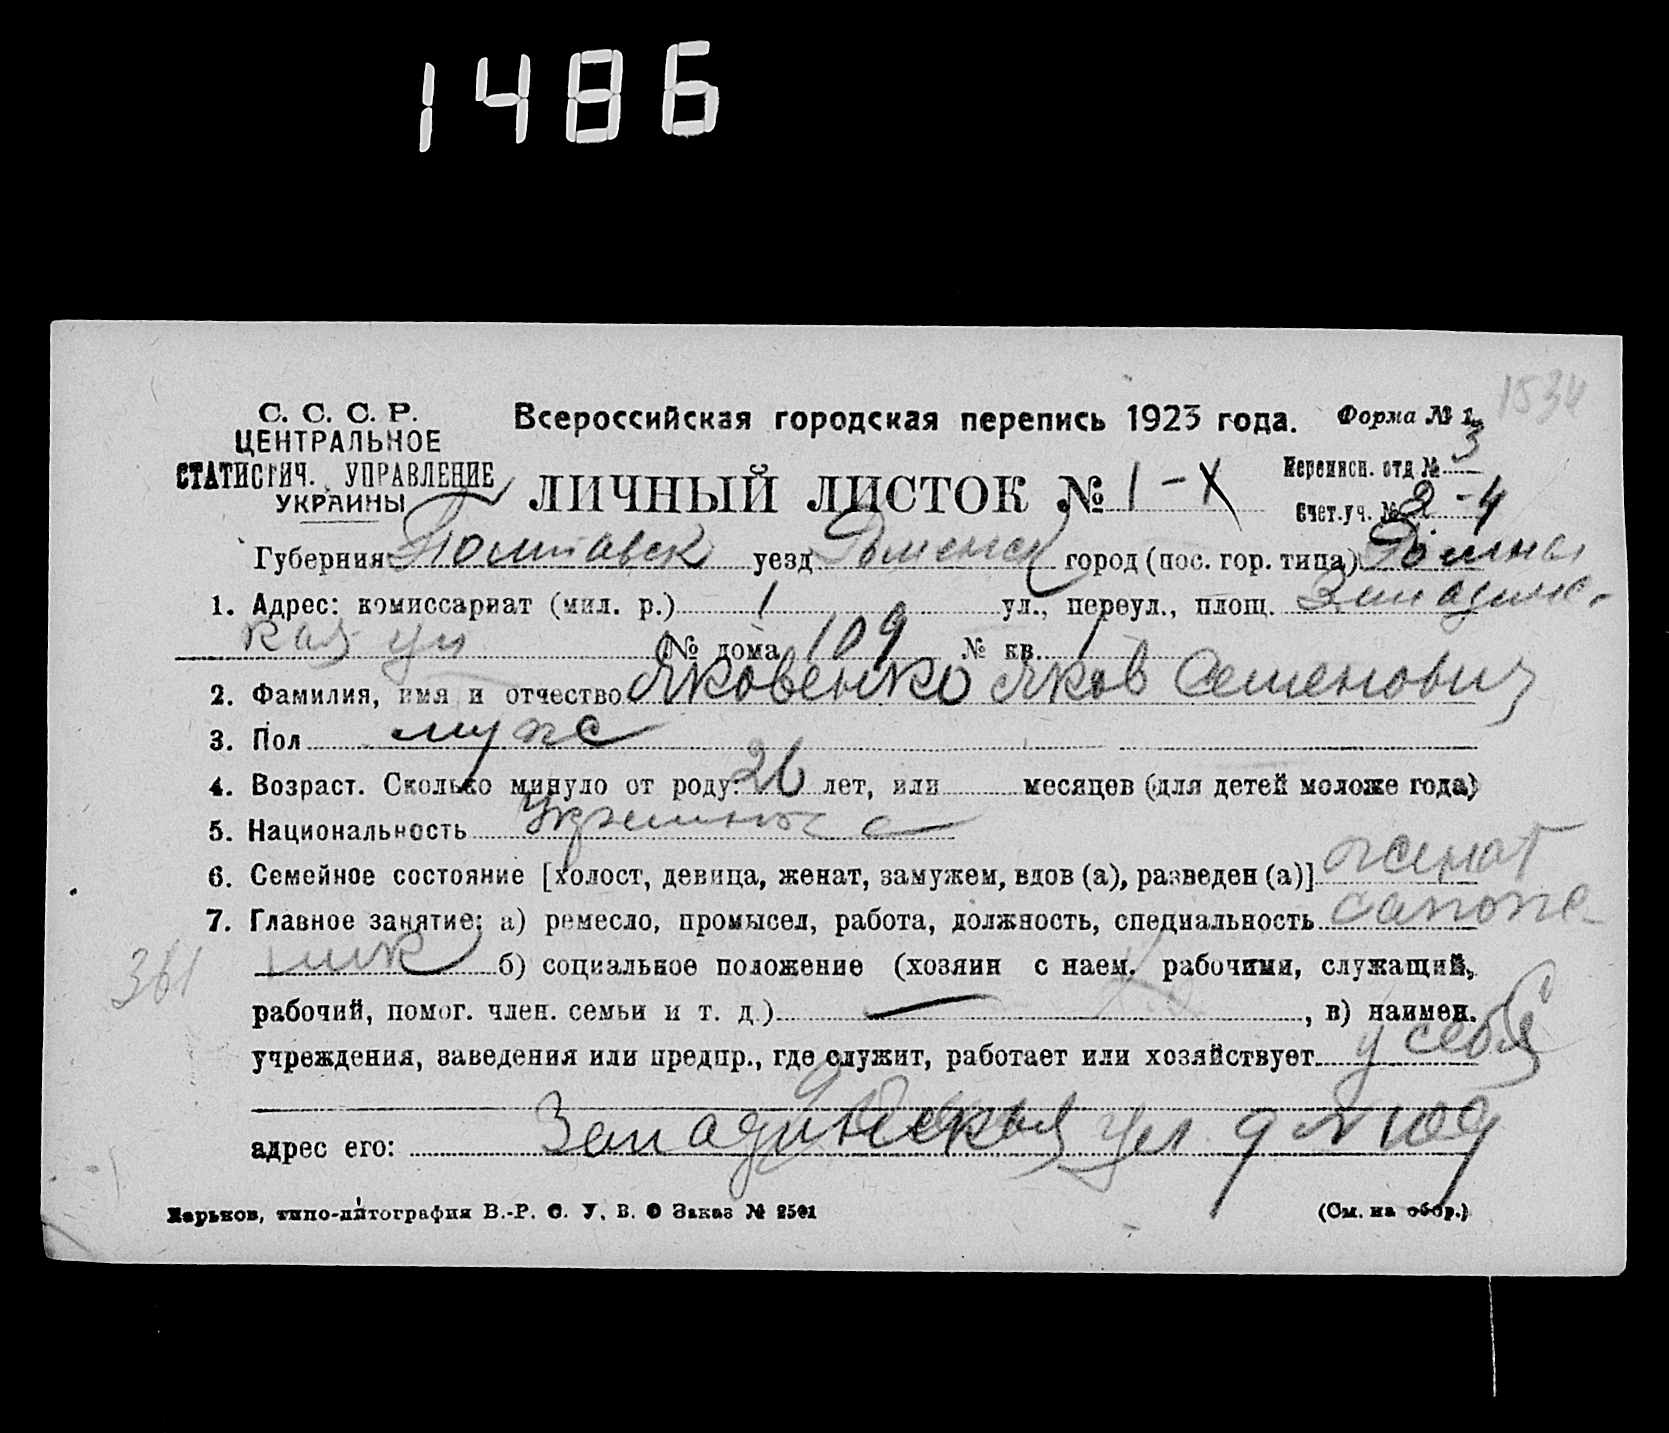 1486
1534
С. С. С. Р.
ЦЕНТРАЛЬНОЕ
СТАТИСТИЧ. УПРАВЛЕНИЕ
УКРАИНЫ
Всероссийская городская перепись 1923 года.
Форма № 1.
ЛИЧНЫЙ ЛИСТОК № 1 - X
Переписн. отд № 3
Счет. уч. № 2 - 4
Губерния Полтавск уезд Роменск город (пос. гор. типа) Ромны
1. Адрес: комиссариат (мил. р.) 1 ул., переул., площ. Западинс-
кая ул № дома 109 № кв. 1
2. Фамилия, имя и отчество Яковенко Яков Семенович
3. Пол мужс
4. Возраст. Сколько минуло от роду: 26 лет, или месяцев (для детей моложе года)
5. Национальность
6. Семейное состояние [холост, девица, женат, замужем, вдов (а), разведен (а)] женат
7. Главное занятие: а) ремесло, промысел, работа, должность, специальность сапож-
361 ник б) социальное положение (хозяин с наем. рабочими, служащий,
рабочий, помог. член. семьи и т. д.) — , в) наимен.
учреждения, заведения или предпр., где служит, работает или хозяйствует у себя
адрес его: Западинская ул д № 109
Харьков, типо-литография В.-Р. С. У. В. О Заказ № 2501
(См. на обор.)